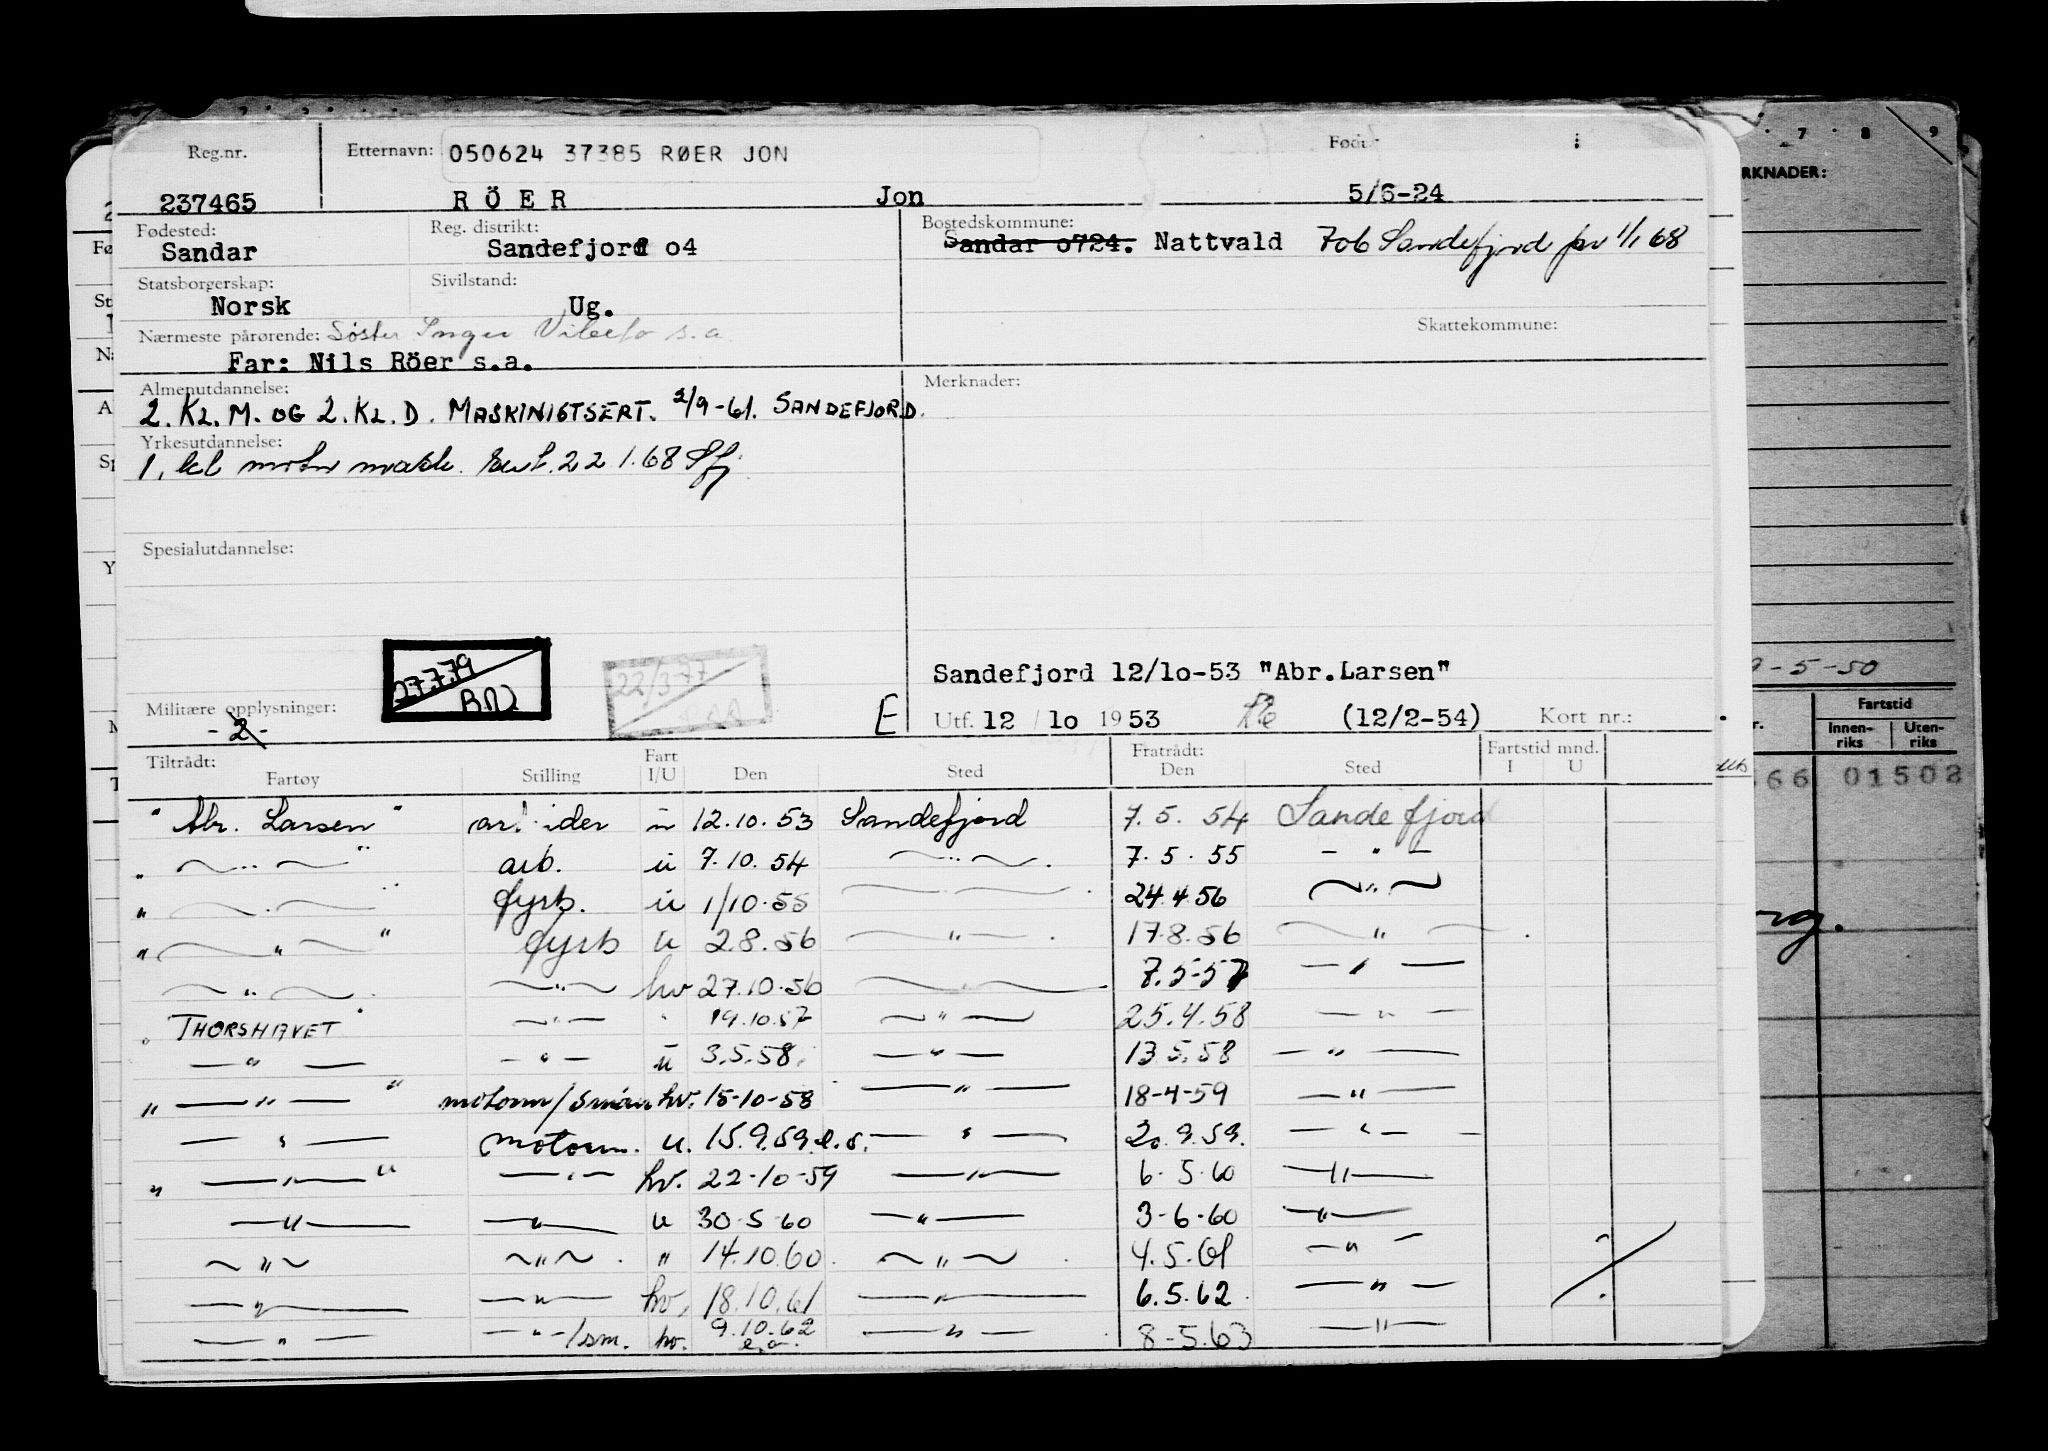 Reg.nr. Etternavn: 050624 37385 RØER JON Født
237465 RÖER Jon 5/6-24
Fødested: Reg. distrikt: Bostedskommune:
Sandar Sandefjord o4 Sandar o724. Nattvald 706 Sandefjord pr 1/1 68
Statsborgerskap: Sivilstand:
Norsk Ug.
Nærmeste pårørende: Søster Inger s.a. Skattekommune:
Far: Nils Röer s.a.
Almenutdannelse: Merknader:
2. KL. M. OG 2. KL. D. MASKINISTSERT. 2/9-61. SANDEFJORD.
Yrkesutdannelse:
1. kl motor mask. sert. 22 1.68 Sfj
Spesialutdannelse:
27.7.79 22/3-77
Sandefjord 12/1o-53 "Abr.Larsen"
Militære opplysninger: E Utf. 12 / 1o 1953 (12/2-54) Kort nr.:
-2-
Tiltrådt: Fart Fratrådt: Fartstid mnd.
Fartøy Stilling I/U Den Sted Den Sted I U
" Abr. Larsen " arbeider u 12.10.53 Sandefjord 7.5.54 Sandefjord
" — " — " arb. u 7.10.54 — " — 7.5.55 — " —
" — " — " fyrb. u 1/10.55 — " — 24.4.56 — " —
" — " — " fyrb u 2.8.56 — " — 17.8.56 — " —
— " — — " — hv 27.10.56 — " — 7.5-57 — " —
" THORSHAVET " — " — " 19.10.57 — " — 25.4.58 — " —
— " — — " — u 3.5.58. — " — 13.5.58 — " —
" — " — " motorm/smører hv. 15-10-58 — " — 18-4-59 — " —
— " — motorm. u. 15.9.59 e.o. — " — 20.9.59. — " —
" — " — " — " — hv. 22-10-59 — " — 6.5.60 — " —
— " — — " — u 30-5-60 — " — 3-6-60 — " —
— " — — " — " 14.10.60. — " — 4.5.61 — " —
— " — — " — hv. 18.10.61 — " — 6.5.62. — " —
— " — — " —/sm. hv. 9.10.62 e.o. — " — 8-5.63 — " —
7 8 9
RKNADER:
-5-50
Fartstid
Innen-riks Uten-riks
66 01502
rg.